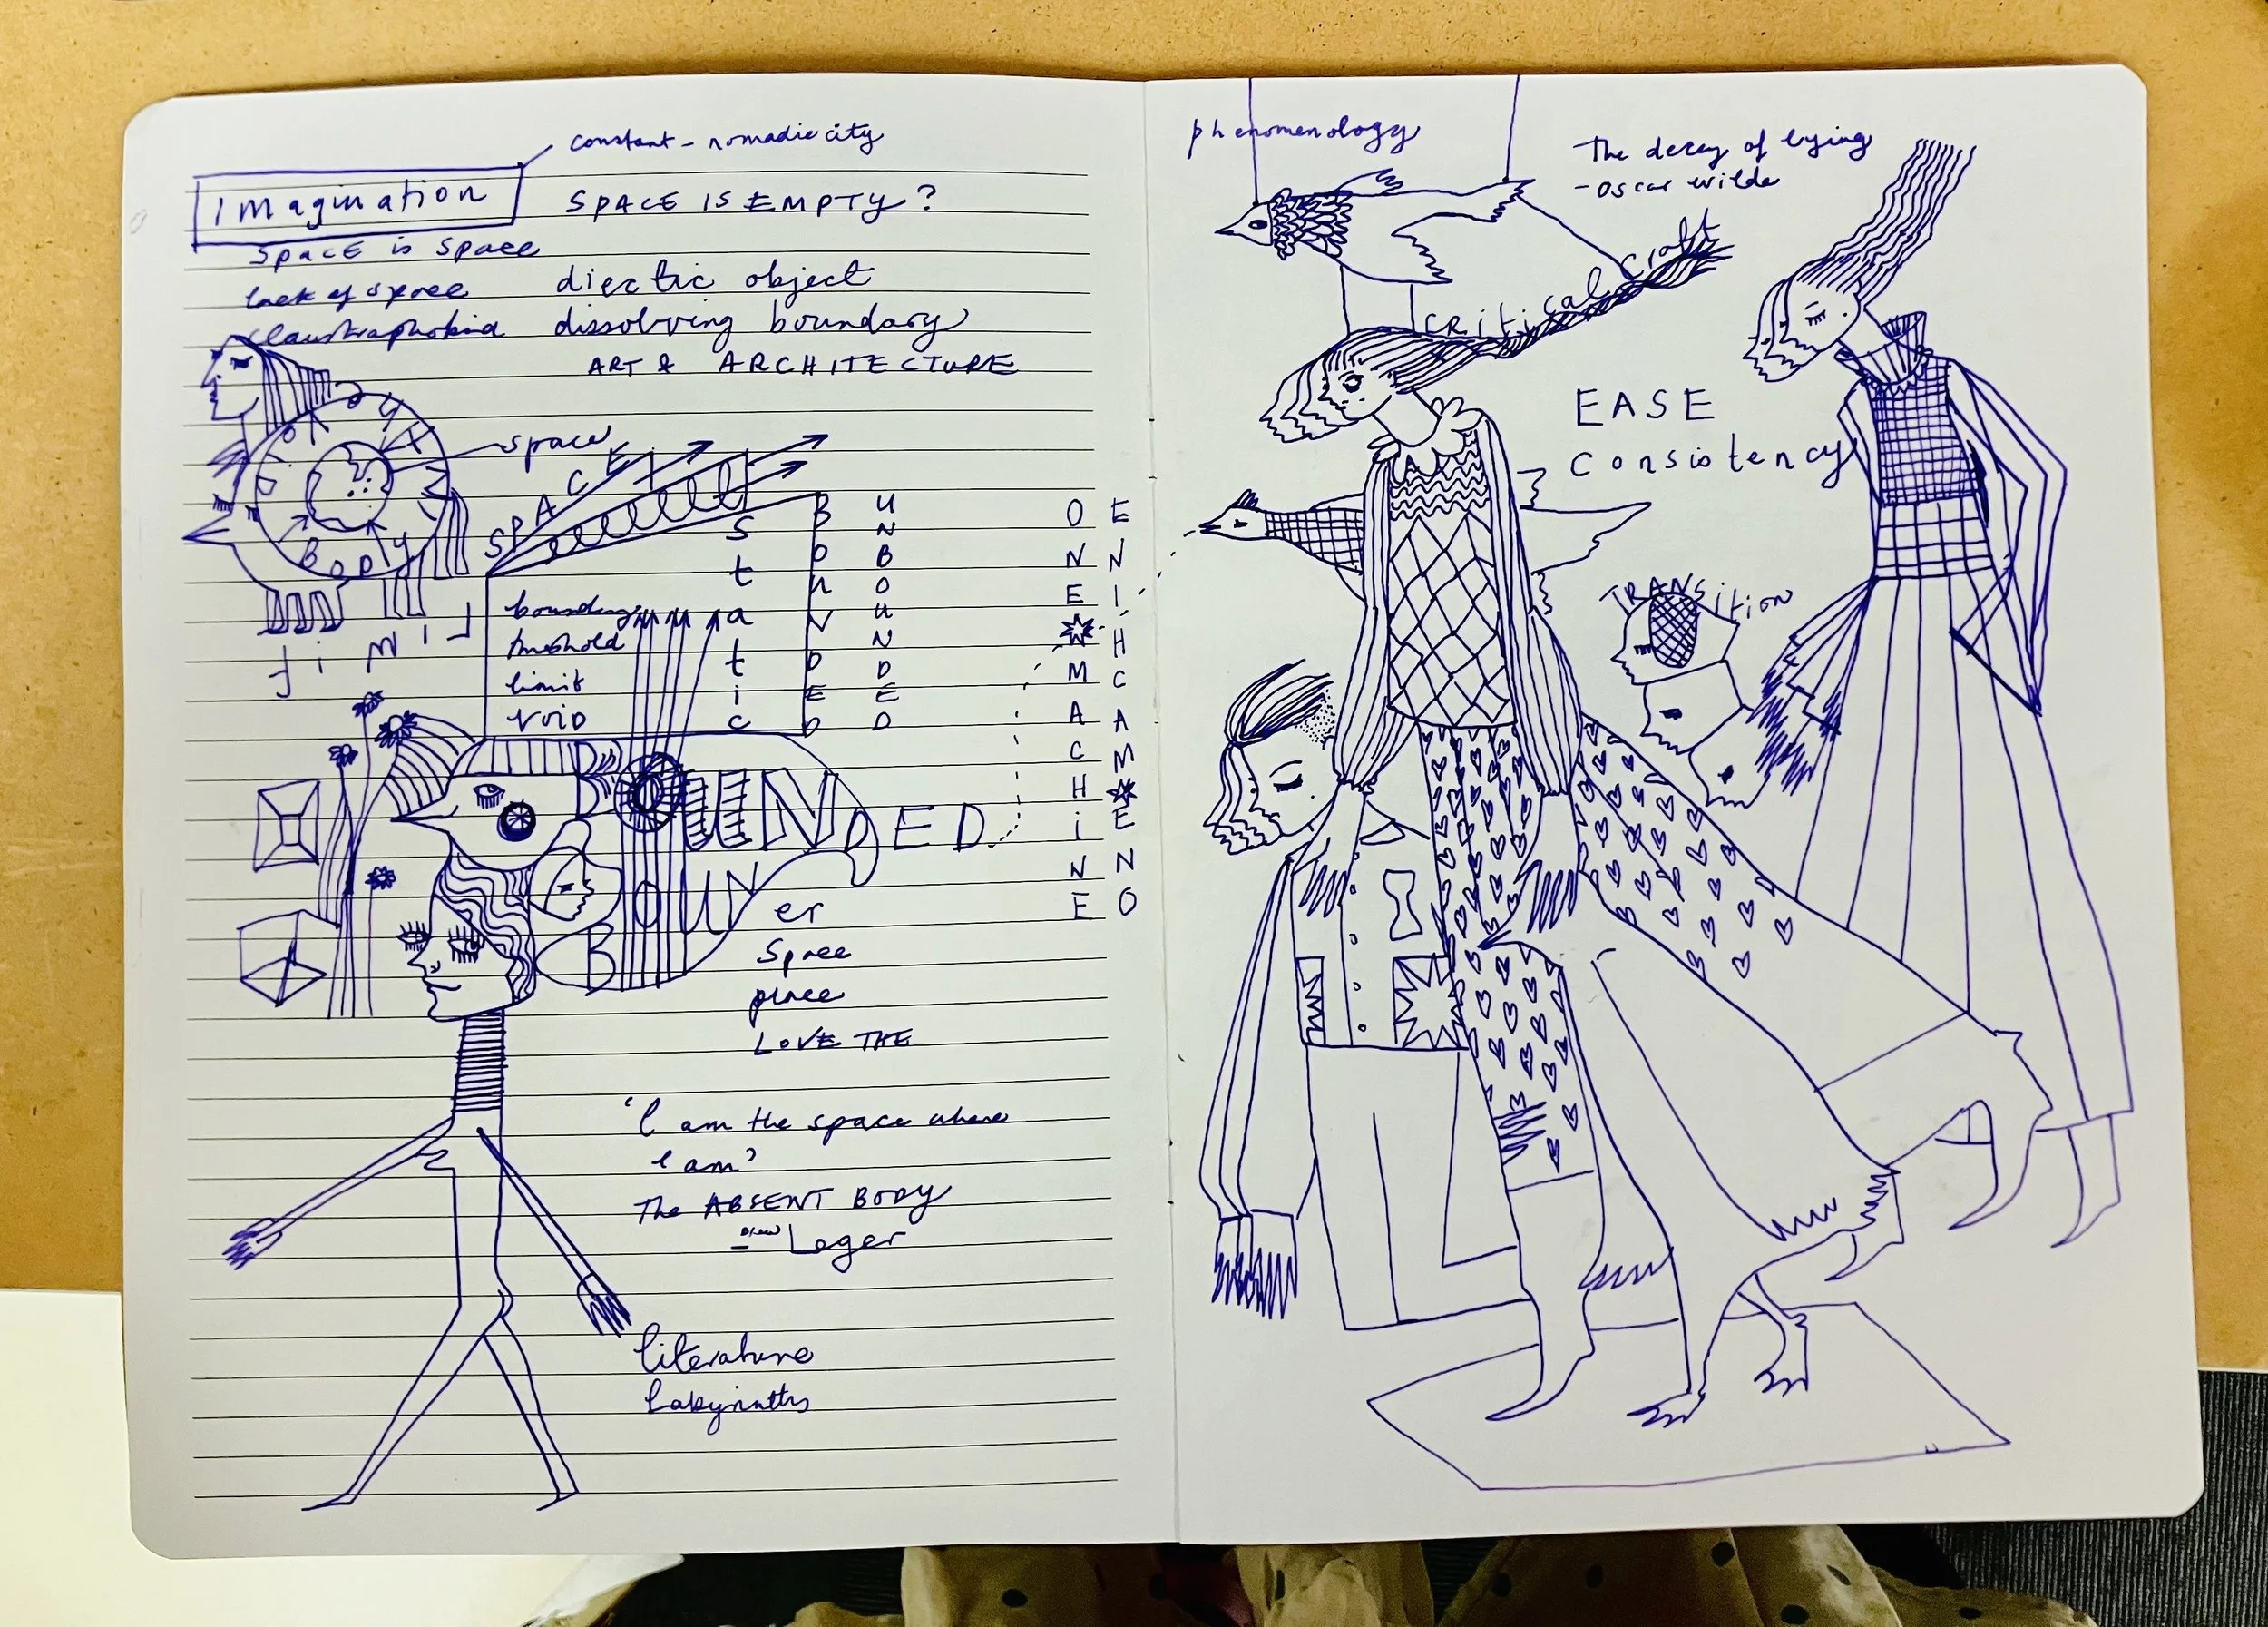 constant - nomadic city
Imagination
SPACE IS EMPTY?
SPACE is space
lack of space
diectic object
claustraphobia
dissolving boundary
ART & ARCHITECTURE
BODY
space
BODY
SPACE
LIMIT
boundary
threshold
limit
VOID
static
BOUNDED
UNBOUNDED
ONE
MACHINE
ENIHCAM
ENO
BOUNDED
BOUNer
Space
place
LOVE THE
'I am the space where
I am'
The ABSENT BODY
Drew Leger
literature
labyrinths
phenomenology
The decay of lying
- oscar wilde
CRitical Craft
EASE
Consistency
TRANSition